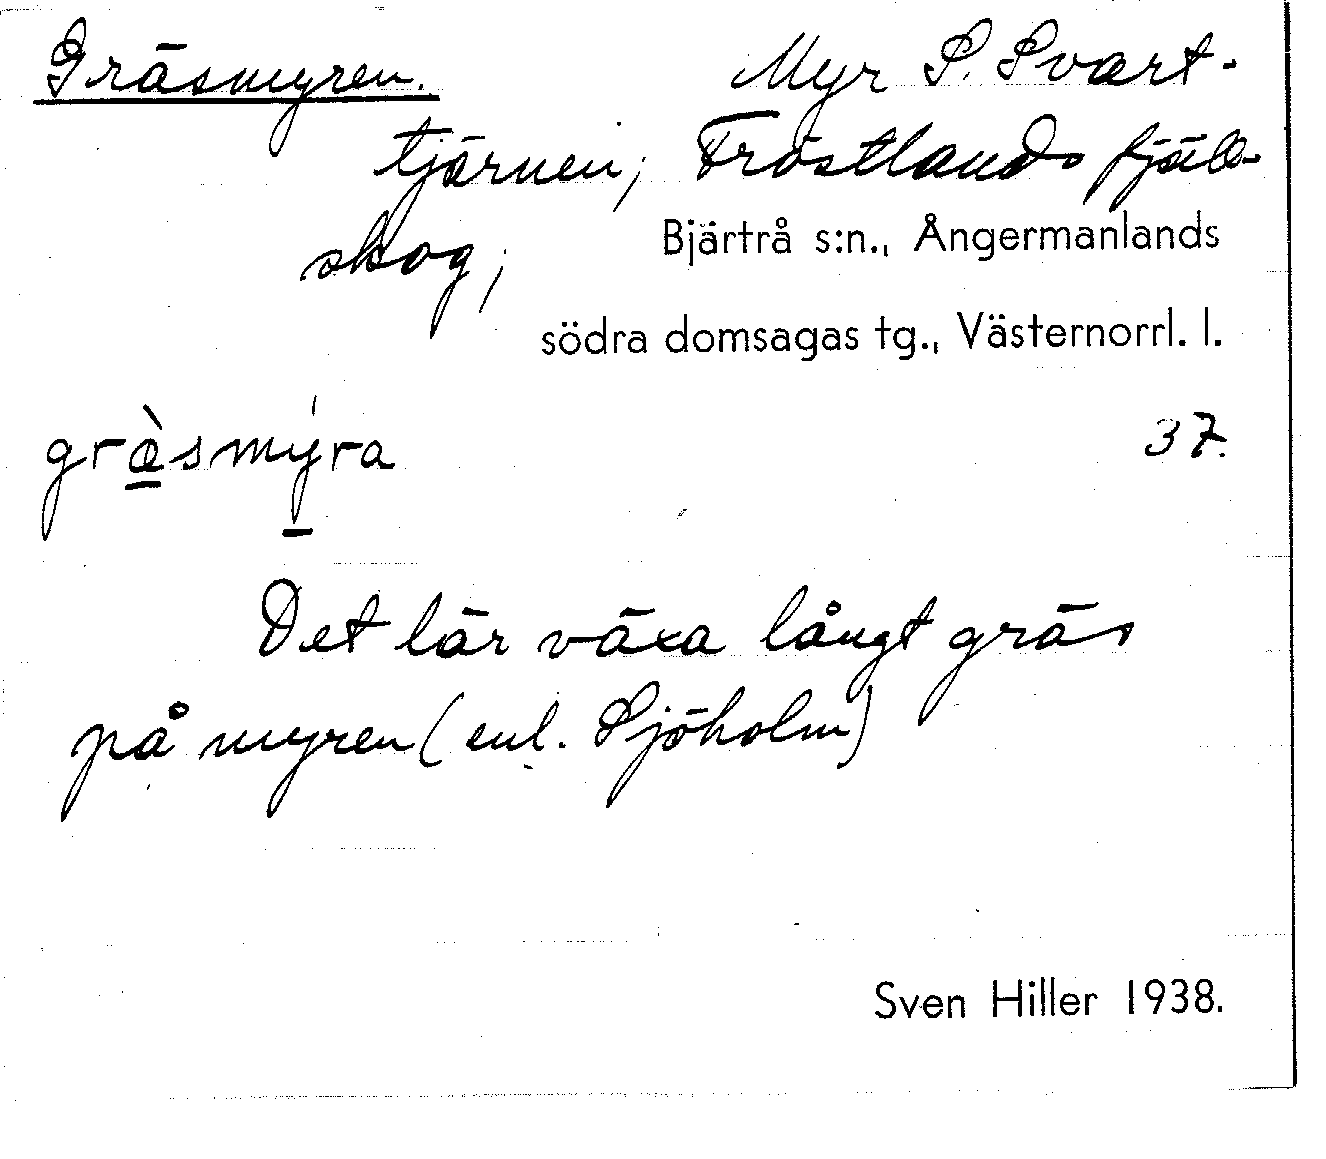 Gräsmyren. Myr S. Svart-
tjärnen; Fröstlands fjäll-
skog;
Bjärtrå s:n., Ångermanlands
södra domsagas tg., Västernorrl. l.
græ̀smýra 37.
Det lär växa långt gräs
på myren (enl. Sjöholm)
Sven Hiller 1938.